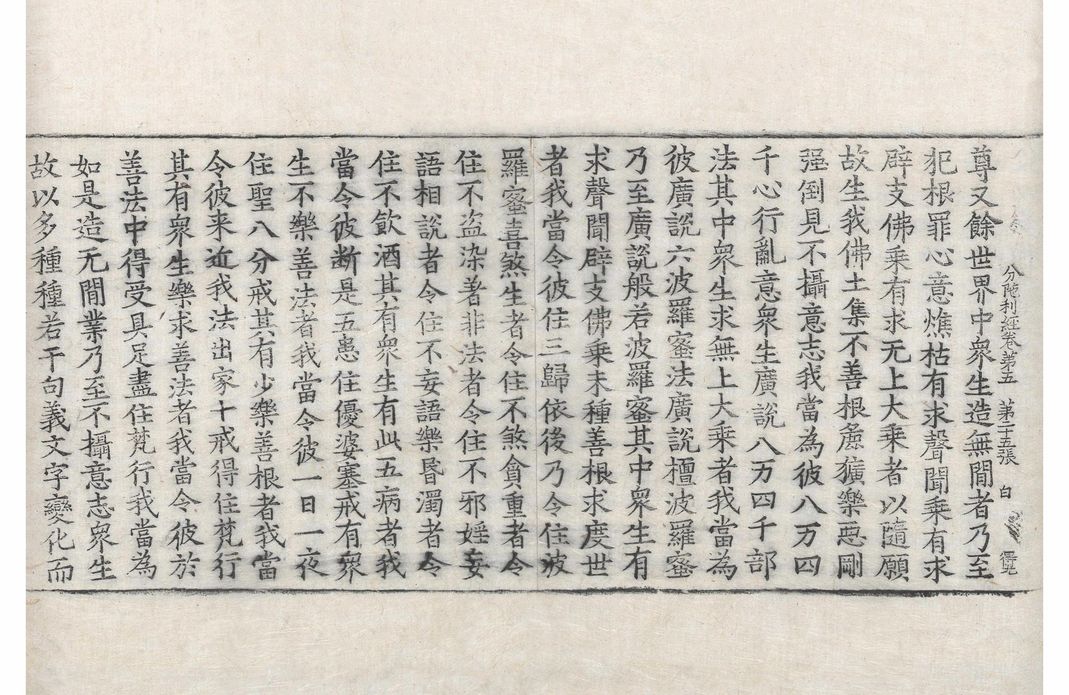 分陀利經卷第五 第二十五張 白
尊又餘世界中衆生造無間者乃至
犯根罪心意燋枯有求聲聞乘有求
辟支佛乘有求无上大乘者以隨願
故生我佛土集不善根麁獷樂惡剛
强倒見不攝意志我當為彼八万四
千心行亂意衆生廣說八万四千部
法其中衆生求無上大乘者我當為
彼廣說六波羅蜜法廣說檀波羅蜜
乃至廣說般若波羅蜜其中衆生有
求聲聞辟支佛乘未種善根求度世
者我當令彼住三歸依後乃令住波
羅蜜喜煞生者令住不煞貪重者令
住不盜染著非法者令住不邪婬妄
語相說者令住不妄語樂昏濁者令
住不飲酒其有衆生有此五病者我
當令彼断是五患住優婆塞戒有衆
生不樂善法者我當令彼一日一夜
住聖八分戒其有少樂善根者我當
令彼来近我法出家十戒得住梵行
其有衆生樂求善法者我當令彼於
善法中得受具足盡住梵行我當為
如是造无間業乃至不攝意志衆生
故以多種種若干句義文字變化而